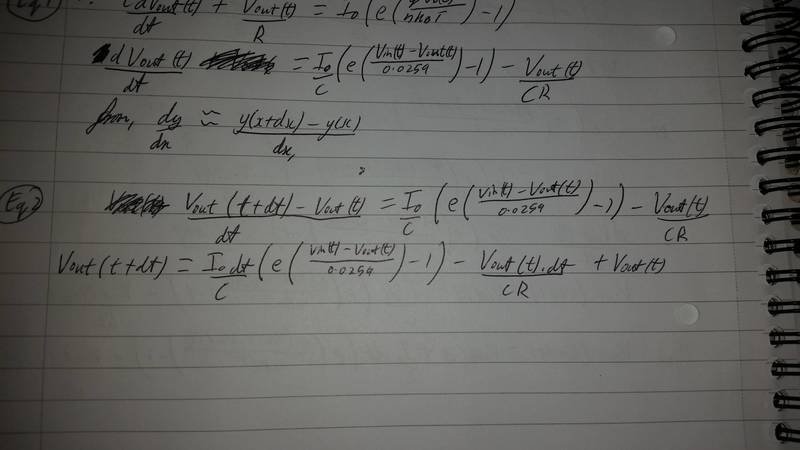 Eq1 C dVout(t)/dt + Vout(t)/R = Io (e( /nkBT) -1)
dVout(t)/dt = Io/C (e(Vin(t) - Vout(t)/0.0259) -1) - Vout(t)/CR
from, dy/dx ≈ y(x+dx) - y(x)/dx,
Eq2 Vout(t+dt) - Vout(t)/dt = Io/C (e(Vin(t) - Vout(t)/0.0259) -1) - Vout(t)/CR
Vout(t+dt) = Io dt/C (e(Vin(t) - Vout(t)/0.0259) -1) - Vout(t).dt/CR + Vout(t)